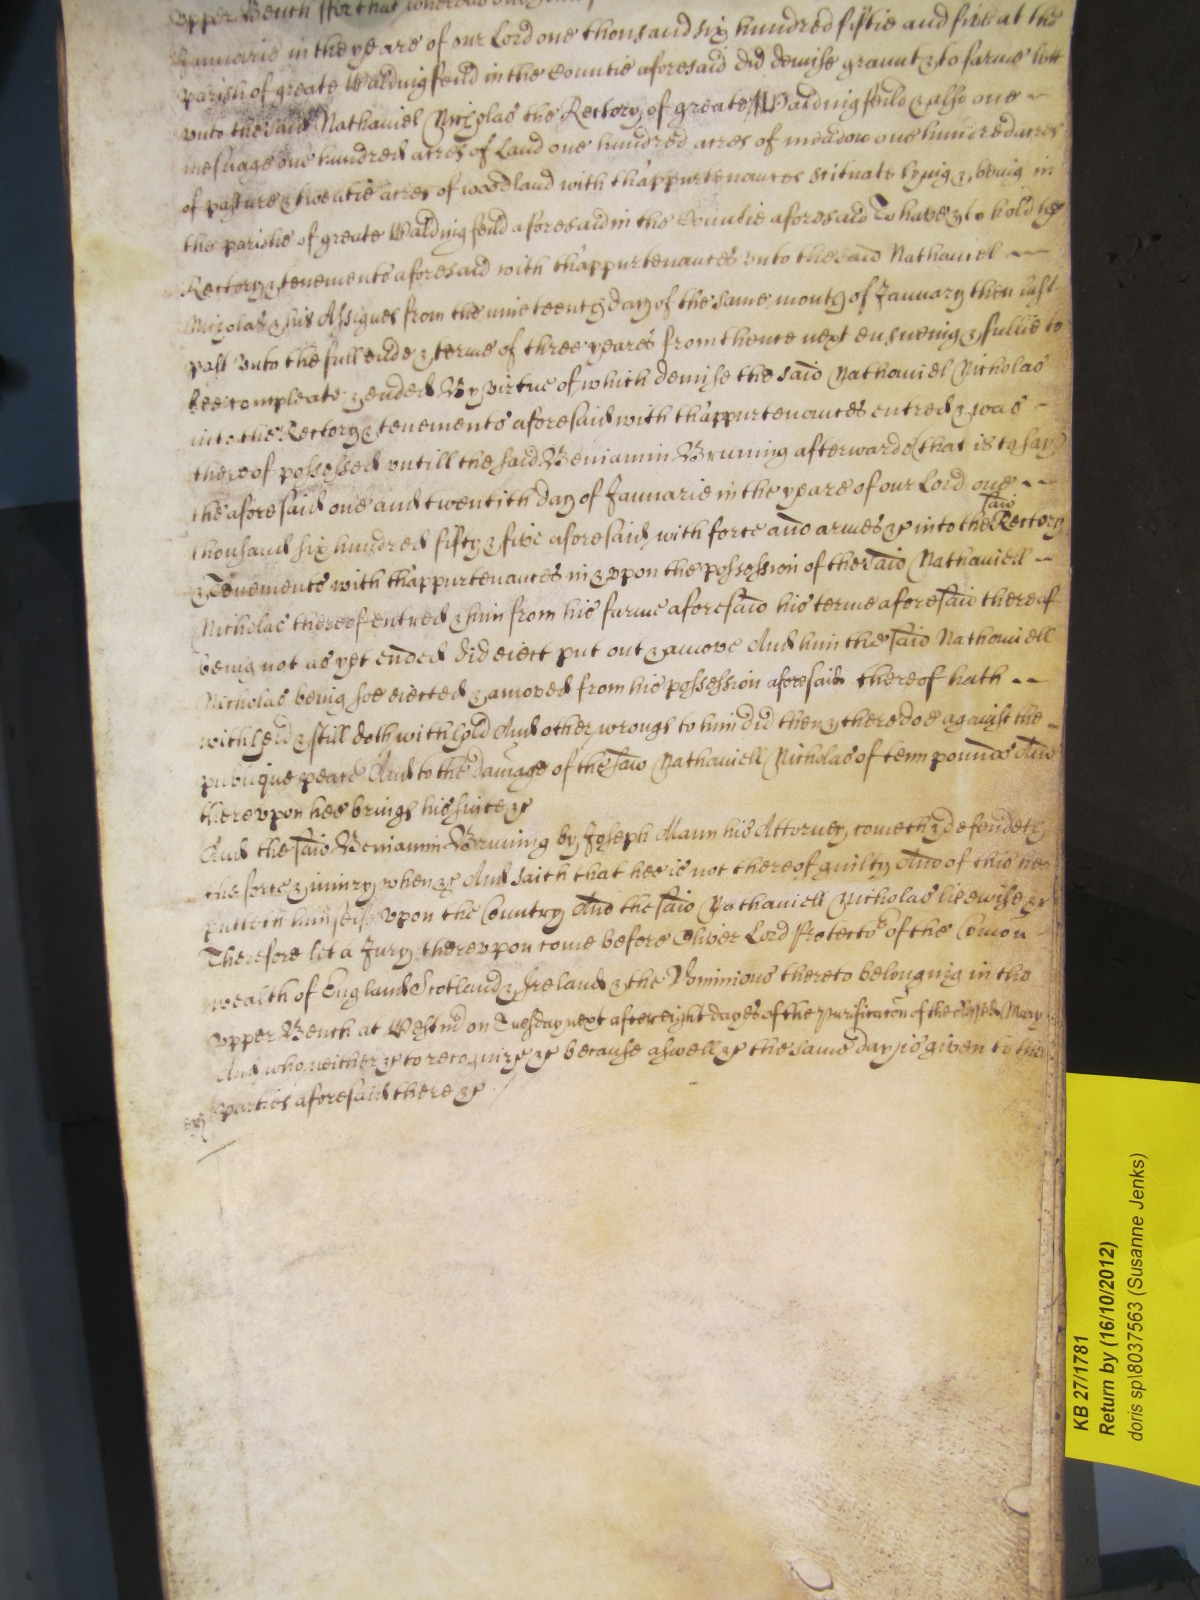 upper Bench ffor that whereas
Januarie in the yeare of our Lord one thousand six hundred fiftie and five at the
parish of greate Waldingfeild in the Countie aforesaid did demise graunt & to farme lett
unto the said Nathaniel Nicholas the Rectory of greate Waldingfeild & also one
mesuage one hundred acres of Land one hundred acres of meadow one hundred acres
of pasture & twentie acres of woodland with thappurtenances scituate lying & being in
the parishe of greate Waldingfeild aforesaid in the Countie aforesaid To have & to hold the
Rectory & tenements aforesaid with thappurtenances unto the said Nathaniel
Nicholas & his Assignes from the nineteenth day of the same month of January then last
past unto the full ende & terme of three yeares from thence next ensueing & fullie to
bee compleate & ended By virtue of which demise the said Nathaniel Nicholas
into the Rectory & tenements aforesaid with thappurtenances entred & was
thereof possessed untill the said Beniamin Bruning afterwards (that is to say)
the aforesaid one and twentith day of Januarie in the yeare of our Lord one
thousand six hundred fifty & five aforesaid with force and armes &c into the said Rectory
& Tenements with thappurtenances in & upon the possession of the said Nathaniell
Nicholas thereof entred & him from his farme aforesaid his terme aforesaid thereof
being not as yet ended did eiect put out & amove And him the said Nathaniell
Nicholas being soe eiected & amoved from his possession aforesaid thereof hath
withheld & still doth withhold And other wrongs to him did then & there doe against the
publique peace And to the damage of the said Nathaniell Nicholas of tenn pounds And
thereupon hee brings his suite &c
And the said Beniamin Bruning by Joseph Mann his Attorney cometh & defendeth
the force & iniury when &c And saith that hee is not thereof guilty And of this hee
putteth himself upon the Country And the said Nathaniell Nicholas likewise &c
Therefore let a Jury thereupon come before Oliver Lord Protector of the Comon
wealth of England Scotland & Ireland & the Dominions thereto belonging in the
upper Bench at Westmr on Tuesday next after eight dayes of the purificacon of the blessed Mary
And who neither &c to recognize &c because aswell &c the same day is given to the
parties aforesaid there &c
KB 27/1781
Return by (16/10/2012)
doris sp\8037563 (Susanne Jenks)